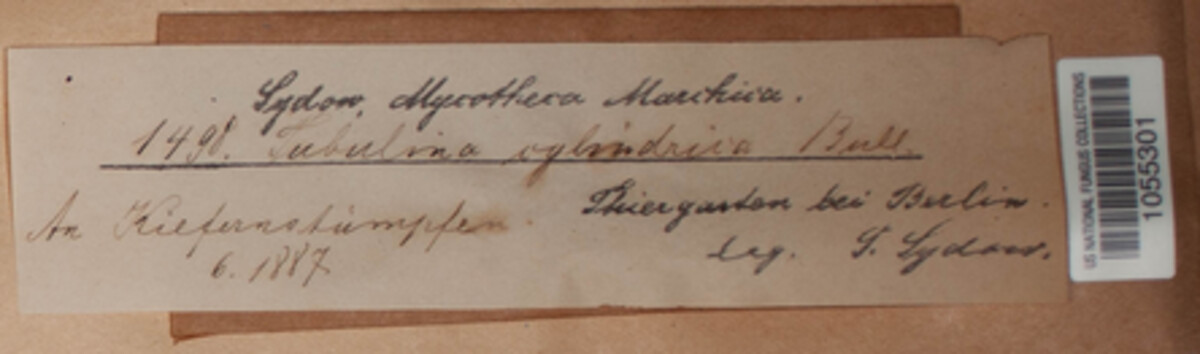 Sydow, Mycotheca Marchica.
1498. Tubulina cylindrica Bull.
An Kiefernstümpfen.
6. 1887
Thiergarten bei Berlin.
leg. P. Sydow.
US NATIONAL FUNGUS COLLECTIONS
1055301